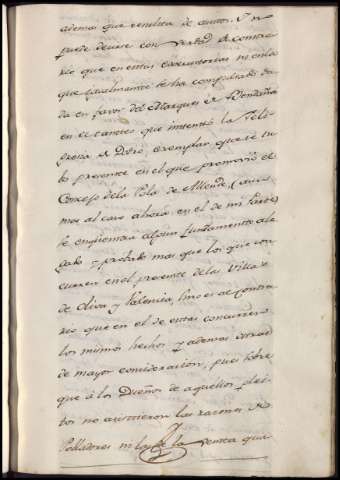 ademas que resulta de autos. Y no
puede decirse con verdad de contra-
rio que en estas executorias ni en la
que igualmente se ha compulsado da-
da en favor del Marques de Bendaña
en el que intentó la Feli-
gresia de exemplar que se tu-
bo presente en el que promovió el
Concejo de la Pola de Allende,
mos al caso ahora en el de mi Parte)
se enquentra algun fundamento ale-
gado y probado mas que los que con-
curren en el presente de las Villas
de Oliva y Valencia, sino es al contra-
rio que en el de estas concurren
los mismos hechos y ademas otros
de mayor consideracion, pues sobre
que à los Dueños de aquellos plei-
tos no asistieron las razones de
Pobladores ni la de la venta que